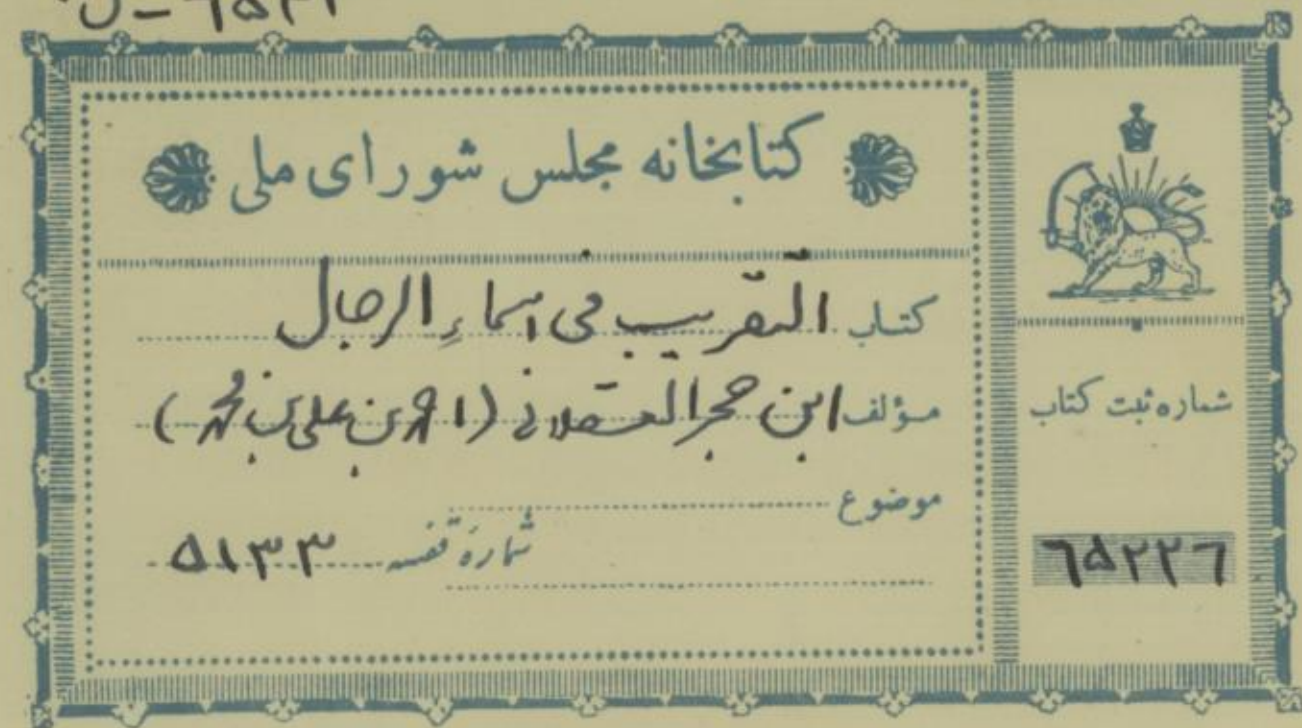 کتابخانه مجلس شورای ملی
کتاب التقریب فی اسماء الرجال
مؤلف ابن حجر العسقلانی (احمد بن علی بن محمد)
موضوع
شماره قفسه ۵۱۳۳
شماره ثبت کتاب
۶۵۲۲۶